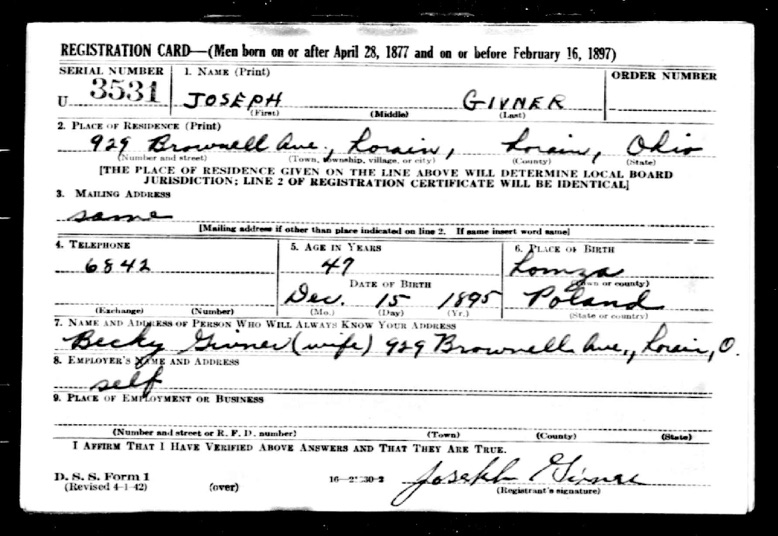 REGISTRATION CARD—(Men born on or after April 28, 1877 and on or before February 16, 1897)
SERIAL NUMBER 1. NAME (Print) ORDER NUMBER
U 3531 JOSEPH GIVNER
(First) (Middle) (Last)
2. PLACE OF RESIDENCE (Print)
929 Brownell Ave., Lorain, Lorain, Ohio
(Number and street) (Town, township, village, or city) (County) (State)
[THE PLACE OF RESIDENCE GIVEN ON THE LINE ABOVE WILL DETERMINE LOCAL BOARD
JURISDICTION; LINE 2 OF REGISTRATION CERTIFICATE WILL BE IDENTICAL]
3. MAILING ADDRESS
same
[Mailing address if other than place indicated on line 2. If same insert word same]
4. TELEPHONE 5. AGE IN YEARS 6. PLACE OF BIRTH
6842 47 Lomza
DATE OF BIRTH (Town or county)
Dec. 15 1895 Poland
(Exchange) (Number) (Mo.) (Day) (Yr.) (State or country)
7. NAME AND ADDRESS OF PERSON WHO WILL ALWAYS KNOW YOUR ADDRESS
Becky Givner (wife) 929 Brownell Ave., Lorain, O.
8. EMPLOYER'S NAME AND ADDRESS
self
9. PLACE OF EMPLOYMENT OR BUSINESS
(Number and street or R. F. D. number) (Town) (County) (State)
I AFFIRM THAT I HAVE VERIFIED ABOVE ANSWERS AND THAT THEY ARE TRUE.
D. S. S. Form 1 Joseph Givner
(Revised 4-1-42) (over) (Registrant's signature)